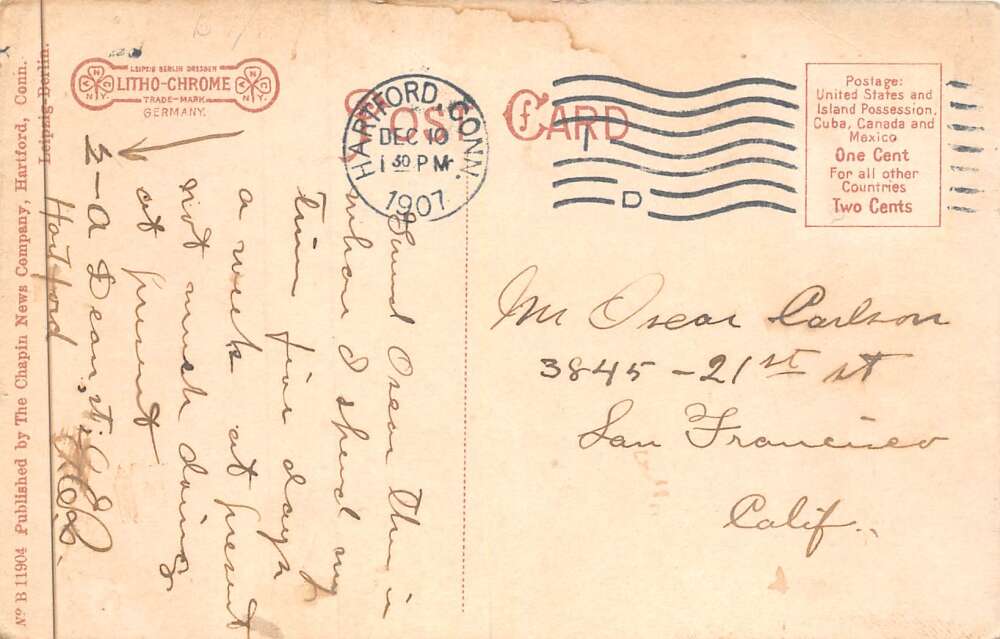 LEIPZIG BERLIN DRESDEN
LITHO-CHROME
TRADE-MARK
GERMANY.
POST CARD
HARTFORD, CONN.
DEC 10
1 30 PM
1907
D
Postage:
United States and
Island Possession,
Cuba, Canada and
Mexico
One Cent
For all other
Countries
Two Cents
Friend Oscar This is
where I spend my
time five days
a week at present
not much doing
at present
5-A Dean St.
Hartford
Mr Oscar Carlson
3845-21st st
San Francisco
Calif.
No B 11904 Published by The Chapin News Company, Hartford, Conn.
Leipzig-Berlin.